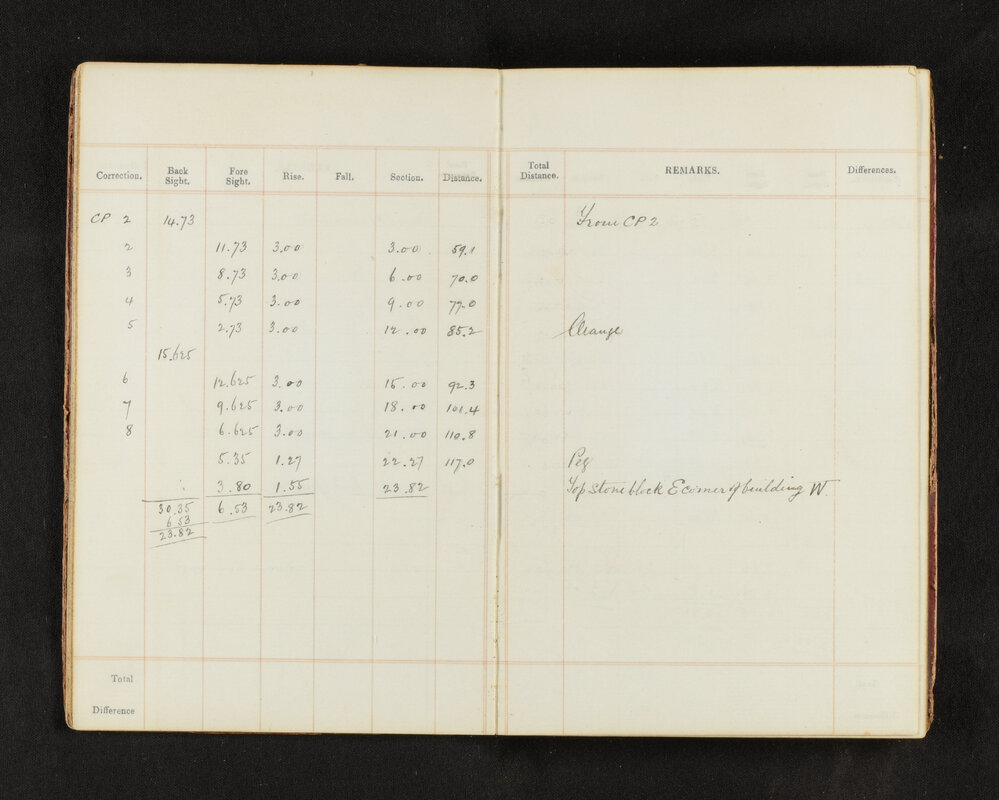 Correction. Back Sight. Fore Sight. Rise. Fall. Section. Distance. Total Distance. REMARKS. Differences.
CP 2 14.73 From CP 2
2 11.73 3.00 3.00 59.1
3 8.73 3.00 6.00 70.0
4 5.73 3.00 9.00 77.0
5 2.73 3.00 12.00 85.2 Change
15.625
6 12.625 3.00 15.00 92.3
7 9.625 3.00 18.00 101.4
8 6.625 3.00 21.00 110.8
5.35 1.27 22.27 117.0 Peg
3.80 1.55 23.82 Top stone block E corner of building W.
30.35 6.53 23.82
6.53
23.82
Total
Difference